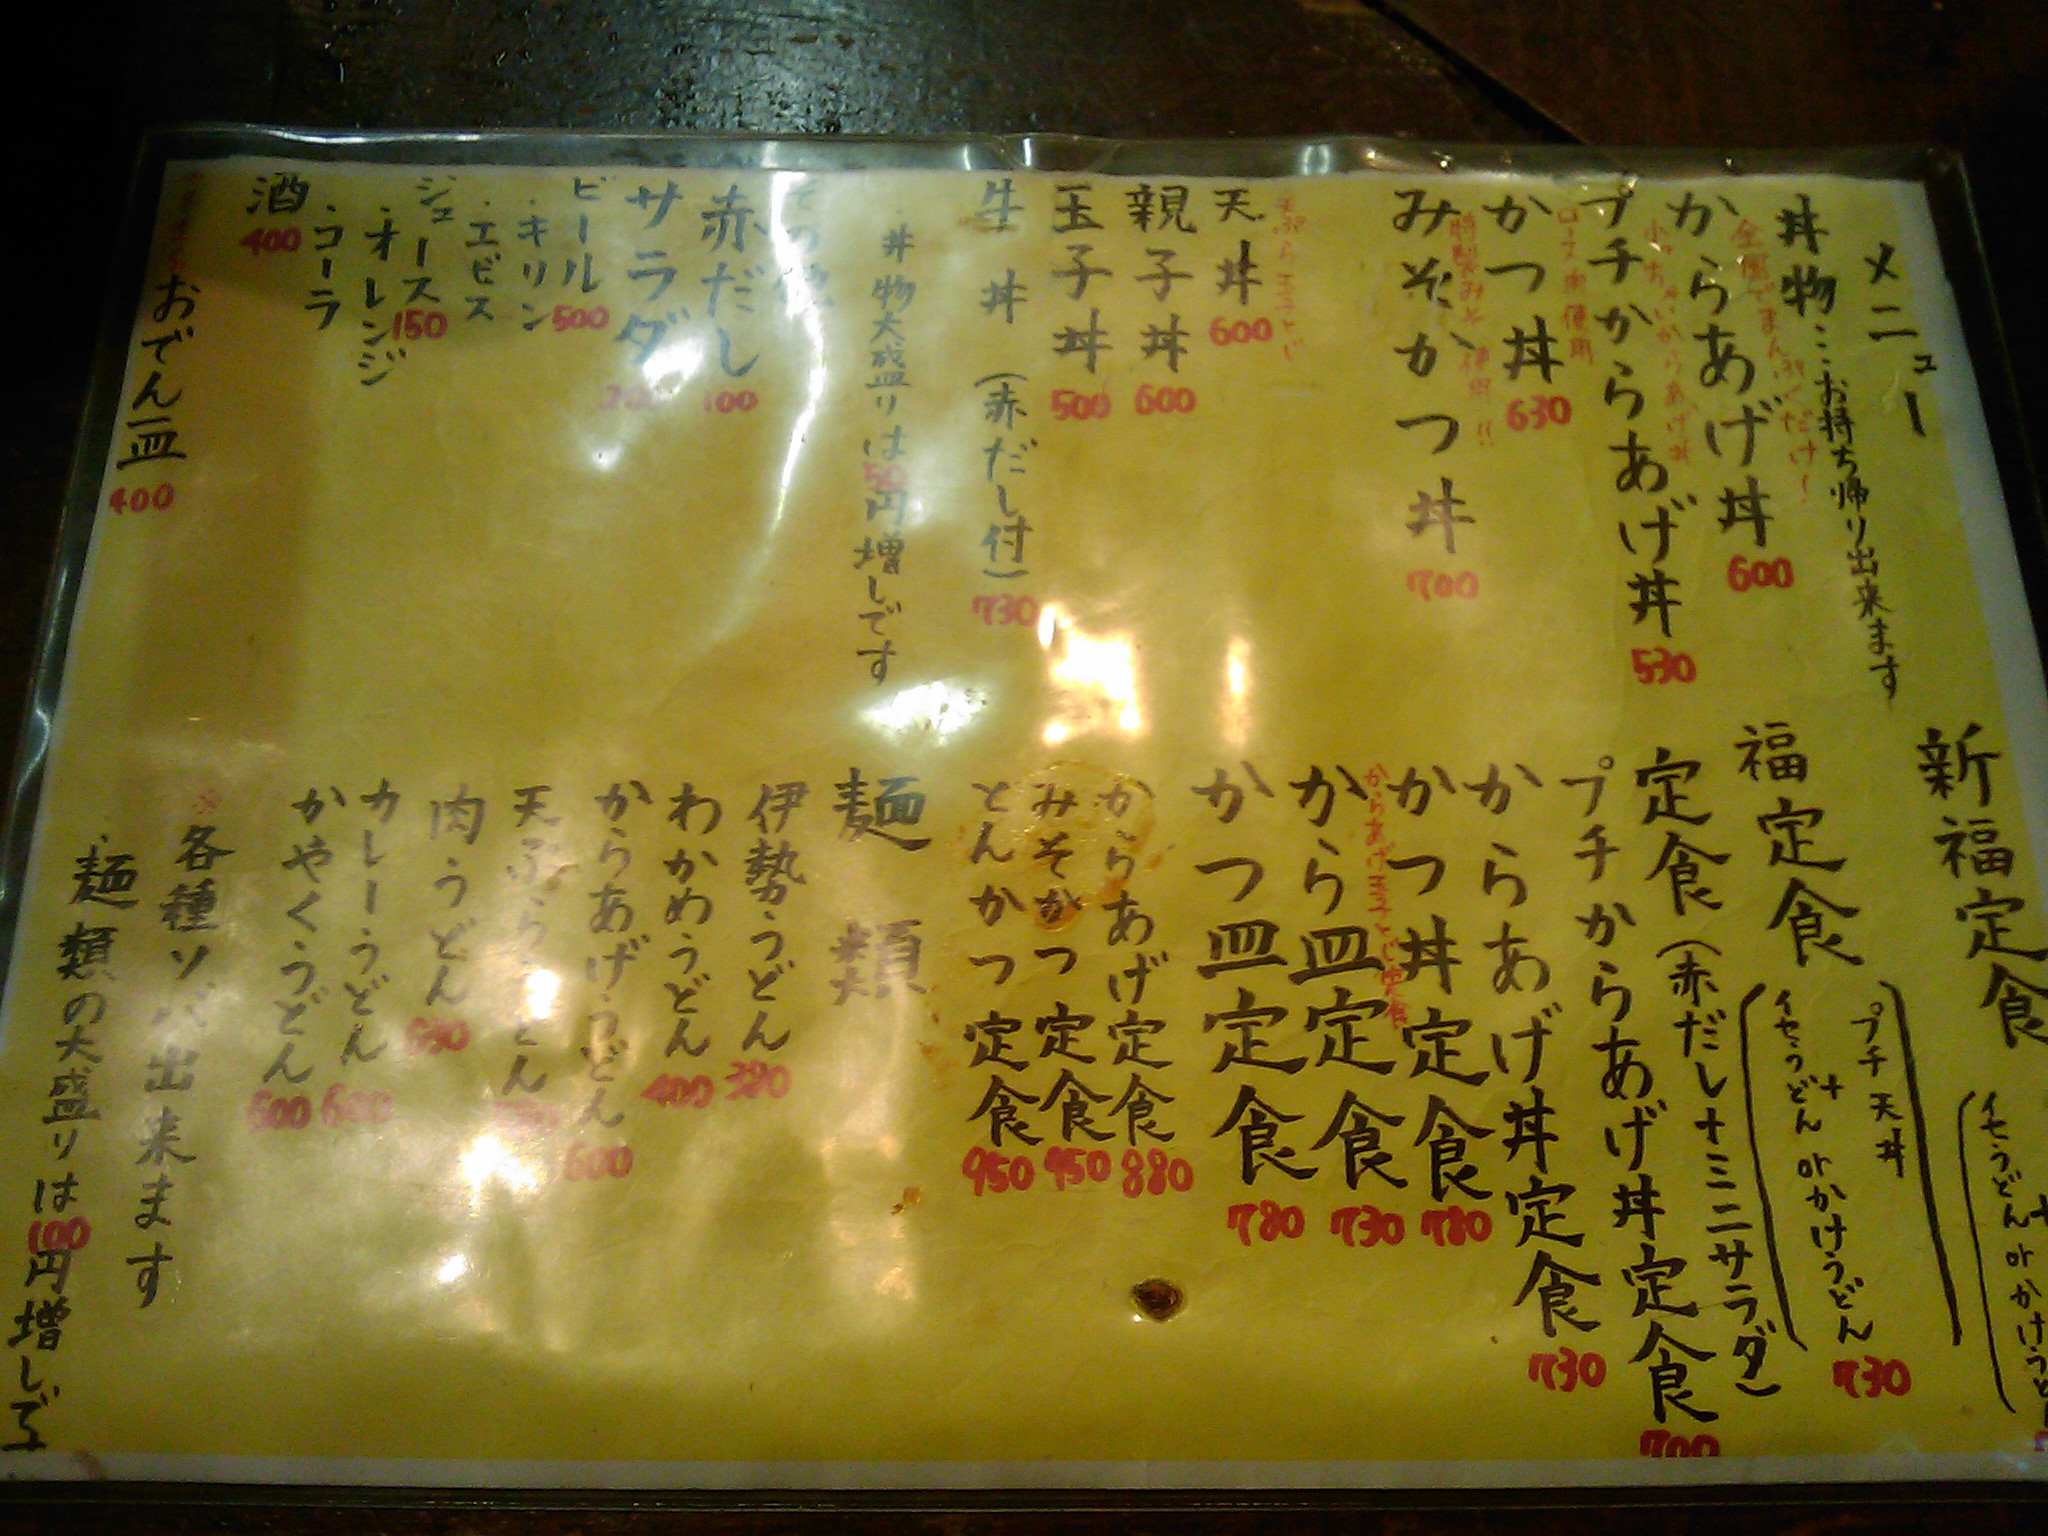 メニュー
丼物…お持ち帰り出来ます
全国でまんぷくだけ！
からあげ丼 600
小っちゃいからあげ丼
プチからあげ丼 530
ロース肉使用
かつ丼 630
特製みそ使用!!
みそかつ丼 700
天ぷら玉子とじ
天丼 600
親子丼 600
玉子丼 500
牛丼（赤だし付）730
・丼物大盛りは50円増しです
その他
赤だし 100
サラダ 200
ビール 500
・キリン
・エビス
ジュース 150
・オレンジ
・コーラ
酒 400
おでん一皿 400
新福定食
イセうどん or かけうど
福定食
プチ天丼
+
イセうどん or かけうどん 730
定食（赤だし+ミニサラダ）
プチからあげ丼定食 700
からあげ丼定食 730
かつ丼定食 780
からあげ玉子とじ定食
から皿定食 730
かつ皿定食 780
からあげ定食 880
みそかつ定食 950
とんかつ定食 950
麺類
伊勢うどん 380
わかめうどん 400
からあげうどん 600
天ぷらうどん
肉うどん
カレーうどん 600
かやくうどん 600
※各種ソバ出来ます
・麺類の大盛りは100円増しで